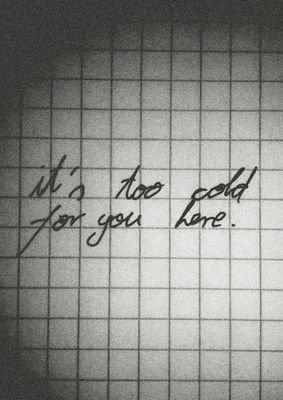 it's too cold
for you here.